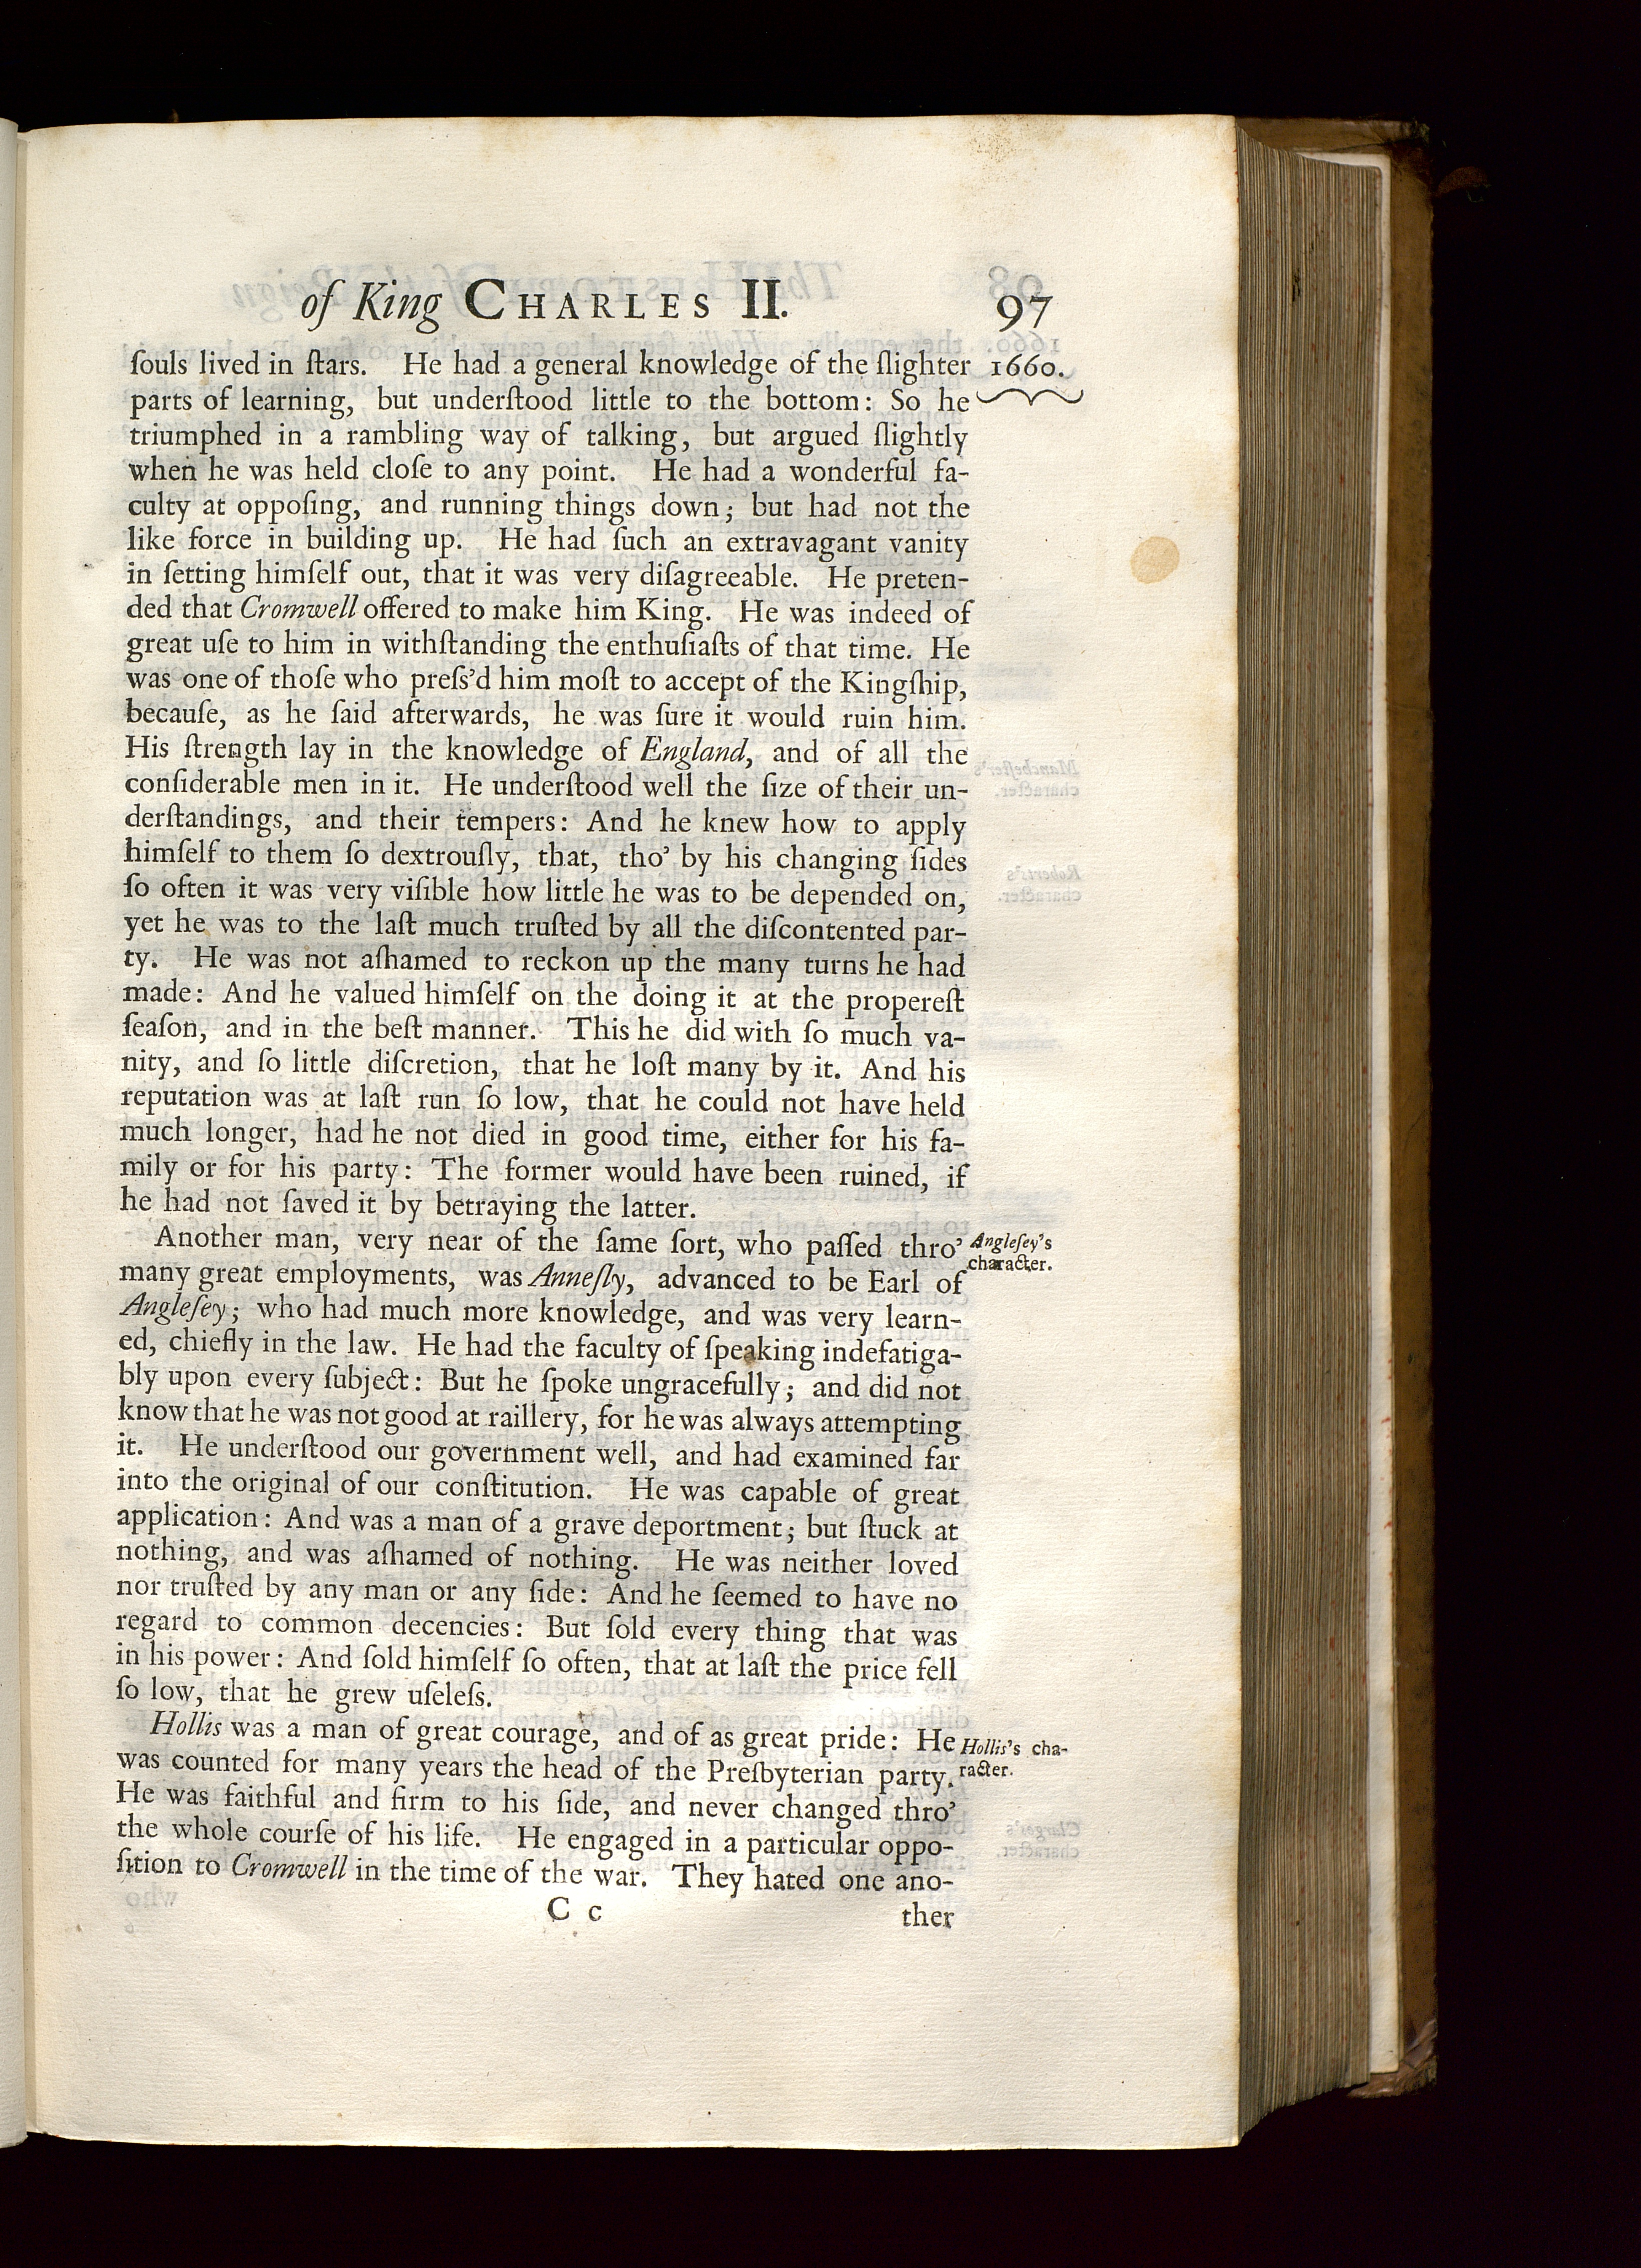 of King CHARLES II. 97
ſouls lived in ſtars. He had a general knowledge of the ſlighter 1660.
parts of learning, but underſtood little to the bottom: So he
triumphed in a rambling way of talking, but argued ſlightly
when he was held cloſe to any point. He had a wonderful fa-
culty at oppoſing, and running things down; but had not the
like force in building up. He had ſuch an extravagant vanity
in ſetting himſelf out, that it was very diſagreeable. He preten-
ded that Cromwell offered to make him King. He was indeed of
great uſe to him in withſtanding the enthuſiaſts of that time. He
was one of thoſe who preſs'd him moſt to accept of the Kingſhip,
becauſe, as he ſaid afterwards, he was ſure it would ruin him.
His ſtrength lay in the knowledge of England, and of all the
conſiderable men in it. He underſtood well the ſize of their un-
derſtandings, and their tempers: And he knew how to apply
himſelf to them ſo dextrouſly, that, tho' by his changing ſides
ſo often it was very viſible how little he was to be depended on,
yet he was to the laſt much truſted by all the diſcontented par-
ty. He was not aſhamed to reckon up the many turns he had
made: And he valued himſelf on the doing it at the propereſt
ſeaſon, and in the beſt manner. This he did with ſo much va-
nity, and ſo little diſcretion, that he loſt many by it. And his
reputation was at laſt run ſo low, that he could not have held
much longer, had he not died in good time, either for his fa-
mily or for his party: The former would have been ruined, if
he had not ſaved it by betraying the latter.
Another man, very near of the ſame ſort, who paſſed thro' Angleſey's
many great employments, was Anneſly, advanced to be Earl of character.
Angleſey; who had much more knowledge, and was very learn-
ed, chiefly in the law. He had the faculty of ſpeaking indefatiga-
bly upon every ſubject: But he ſpoke ungracefully; and did not
know that he was not good at raillery, for he was always attempting
it. He underſtood our government well, and had examined far
into the original of our conſtitution. He was capable of great
application: And was a man of a grave deportment; but ſtuck at
nothing, and was aſhamed of nothing. He was neither loved
nor truſted by any man or any ſide: And he ſeemed to have no
regard to common decencies: But ſold every thing that was
in his power: And ſold himſelf ſo often, that at laſt the price fell
ſo low, that he grew uſeleſs.
Hollis was a man of great courage, and of as great pride: He Hollis's cha-
was counted for many years the head of the Preſbyterian party. racter.
He was faithful and firm to his ſide, and never changed thro'
the whole courſe of his life. He engaged in a particular oppo-
ſition to Cromwell in the time of the war. They hated one ano-
C c ther